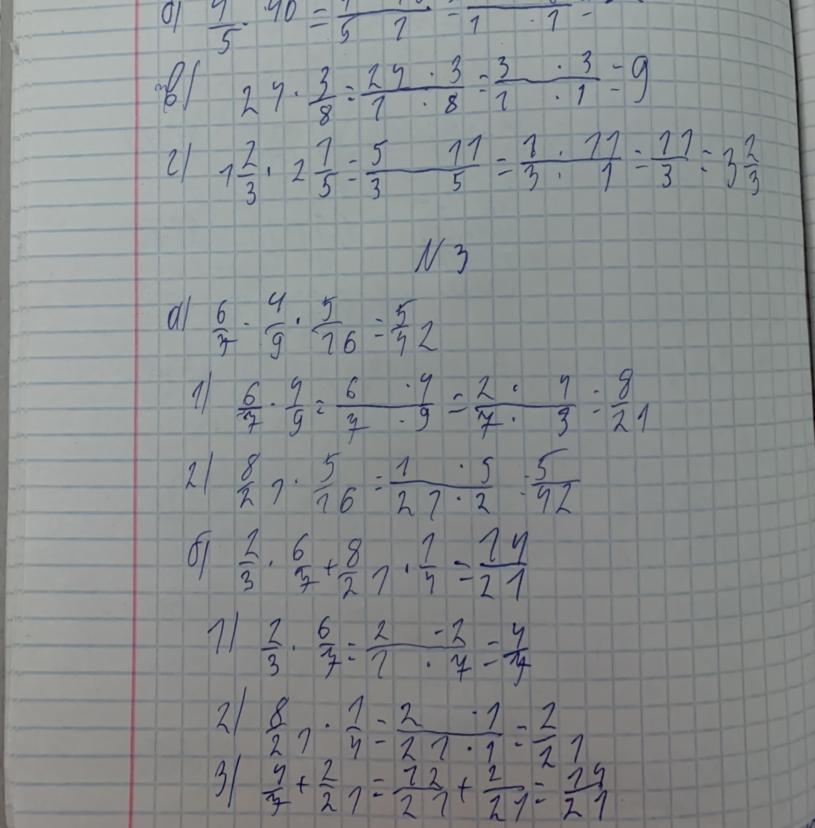 б) 4/5 · 40 =
в) 24 · 3/8 = 24 · 3 / 1 · 8 = 3 · 3 / 1 · 1 = 9
г) 1 2/3 · 2 1/5 = 5 11 / 3 5 = 1 · 11 / 3 · 1 = 11/3 = 3 2/3
N 3
а) 6/7 · 4/9 · 5/16 = 5/42
1) 6/7 · 4/9 = 6 · 4 / 7 · 9 = 2 · 4 / 7 · 3 = 8/21
2) 8/21 · 5/16 = 1 · 5 / 21 · 2 = 5/42
б) 2/3 · 6/7 + 8/21 · 1/4 = 14/21
1) 2/3 · 6/7 = 2 · 2 / 1 · 7 = 4/7
2) 8/21 · 1/4 = 2 · 1 / 21 · 1 = 2/21
3) 4/7 + 2/21 = 12/21 + 2/21 = 14/21